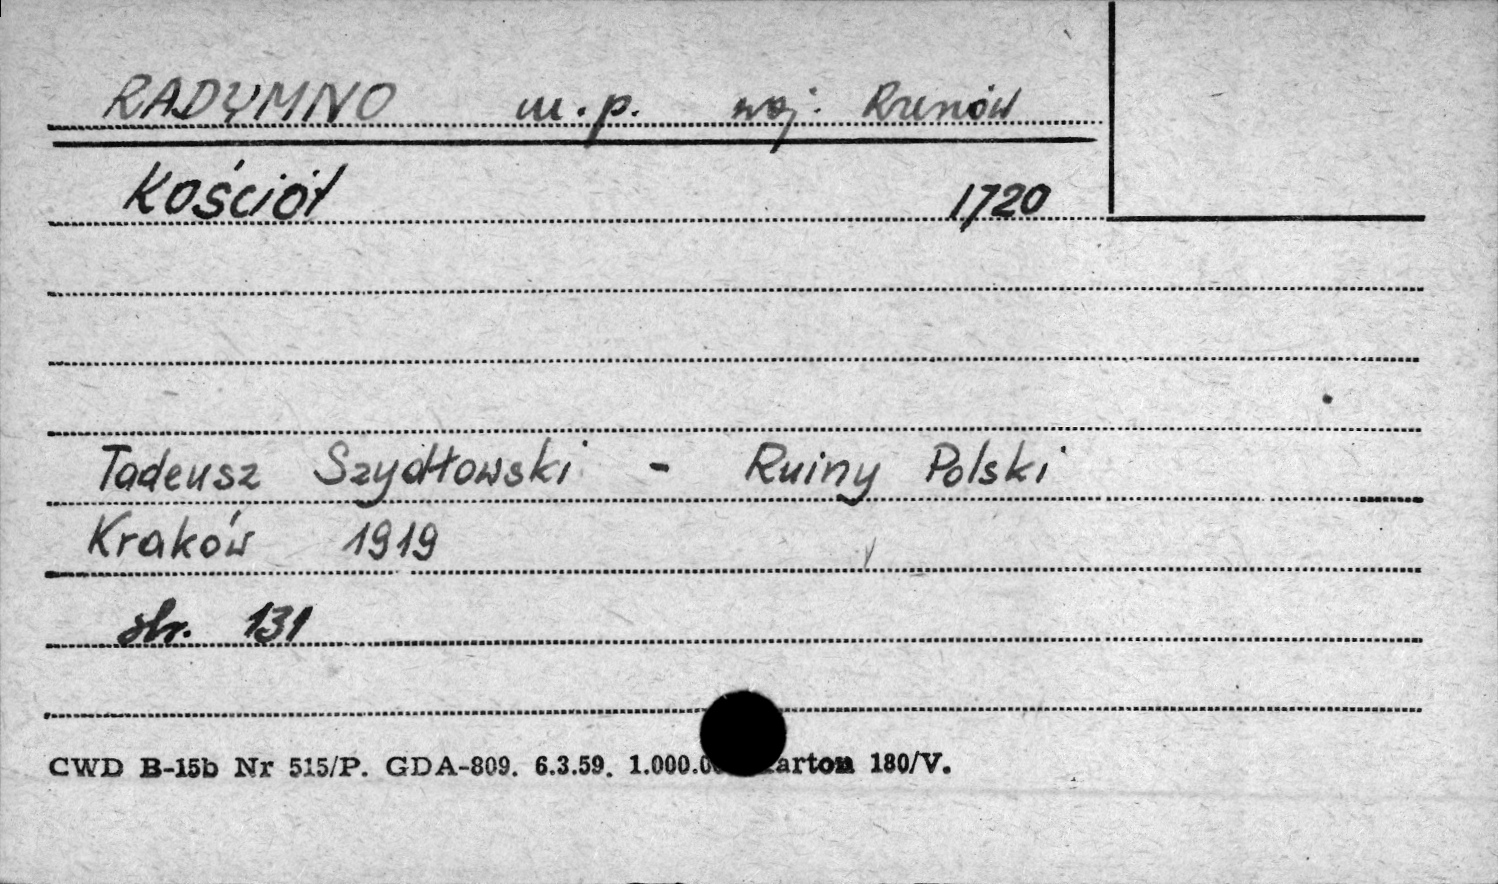 RADYMNO m.p. woj. Rzeszów
Kościół 1720
Tadeusz Szydłowski - Ruiny Polski
Kraków 1919
str. 131
CWD B-15b Nr 515/P. GDA-809. 6.3.59. 180/V.